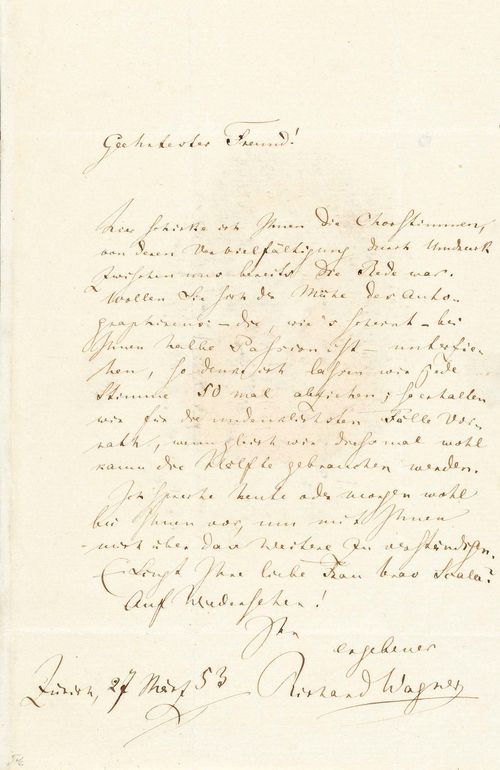 Geehrtester Freund!
Hier schicke ich Ihnen die Chorstimmen,
von deren Vervielfältigung durch Umdruck
zwischen uns bereits die Rede war.
Wollen Sie sich der Mühe des Auto-
graphirens – die, wie's scheint – bei
Ihnen halbe Passion ist – unterzie-
hen, so denke ich lassen wir jede
Stimme 50 mal abziehen; so erhalten
wir für die undenklichsten Fälle Vor-
rath, wenngleich wir diesmal wohl
kaum die Hälfte gebrauchen werden.
Ich spreche heute oder morgen wohl
bei Ihnen vor, um mit Ihnen
mich über das Weitere zu verständigen.
Singt Ihre liebe Frau brav Scala?
Auf Wiedersehen!
Ihr
ergebener
Richard Wagner
Zürich, 27 März 53